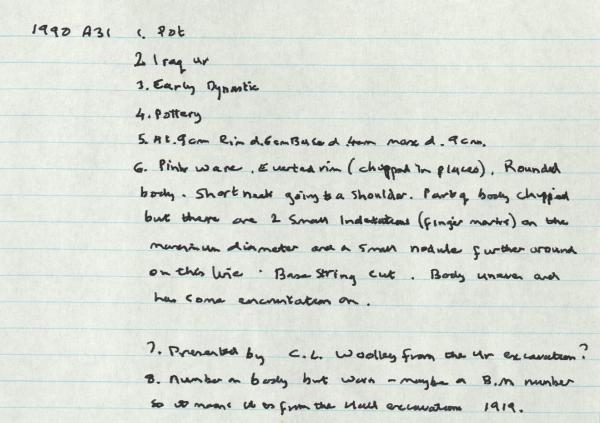 1990 A31 1. Pot
2 Iraq Ur
3. Early Dynastic
4. Pottery
5. Ht. 9cm Rim d. 6cm Base d 4cm max d. 9cm.
6. Pink ware. Everted rim (chipped in places). Rounded
body. Short neck going to a shoulder. Part of body chipped
but there are 2 small indentations (finger marks) on the
maximum diameter and a small nodule further around
on this line. Base string cut. Body uneven and
has some encrustation on.
7. Presented by C.L. Woolley from the Ur excavation?
8. Number on body but worn - maybe a B.M number
so it means it is from the Hall excavation 1919.